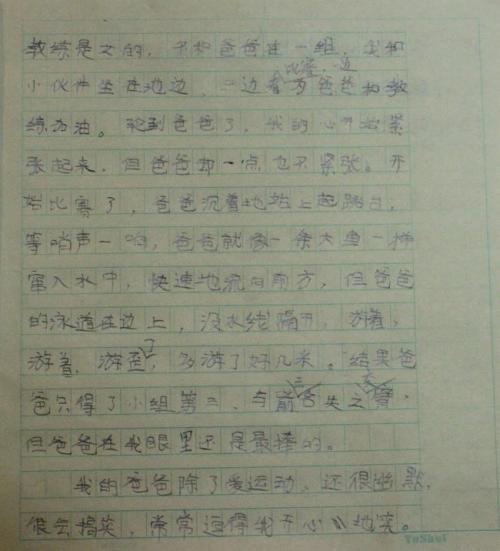 教练是女的,不和爸爸在一组,我和
小伙伴坐在池边,一边看比赛,一边为爸爸和教
练加油。轮到爸爸了,我的心开始紧
张起来,但爸爸却一点也不紧张。开
始比赛了,爸爸沉着地站上起跳台,
等哨声一响,爸爸就像一条大鱼一样
窜入水中,快速地流向前方,但爸爸
的泳道在边上,没水线隔开,游着,
游着,游歪了,多游了好几米。结果爸
爸只得了小组第三,与前三失之
但爸爸在我眼里还是最棒的。
我的爸爸除了爱运动,还很幽默,
很会搞笑,常常逗得我开心地笑。
YuShui